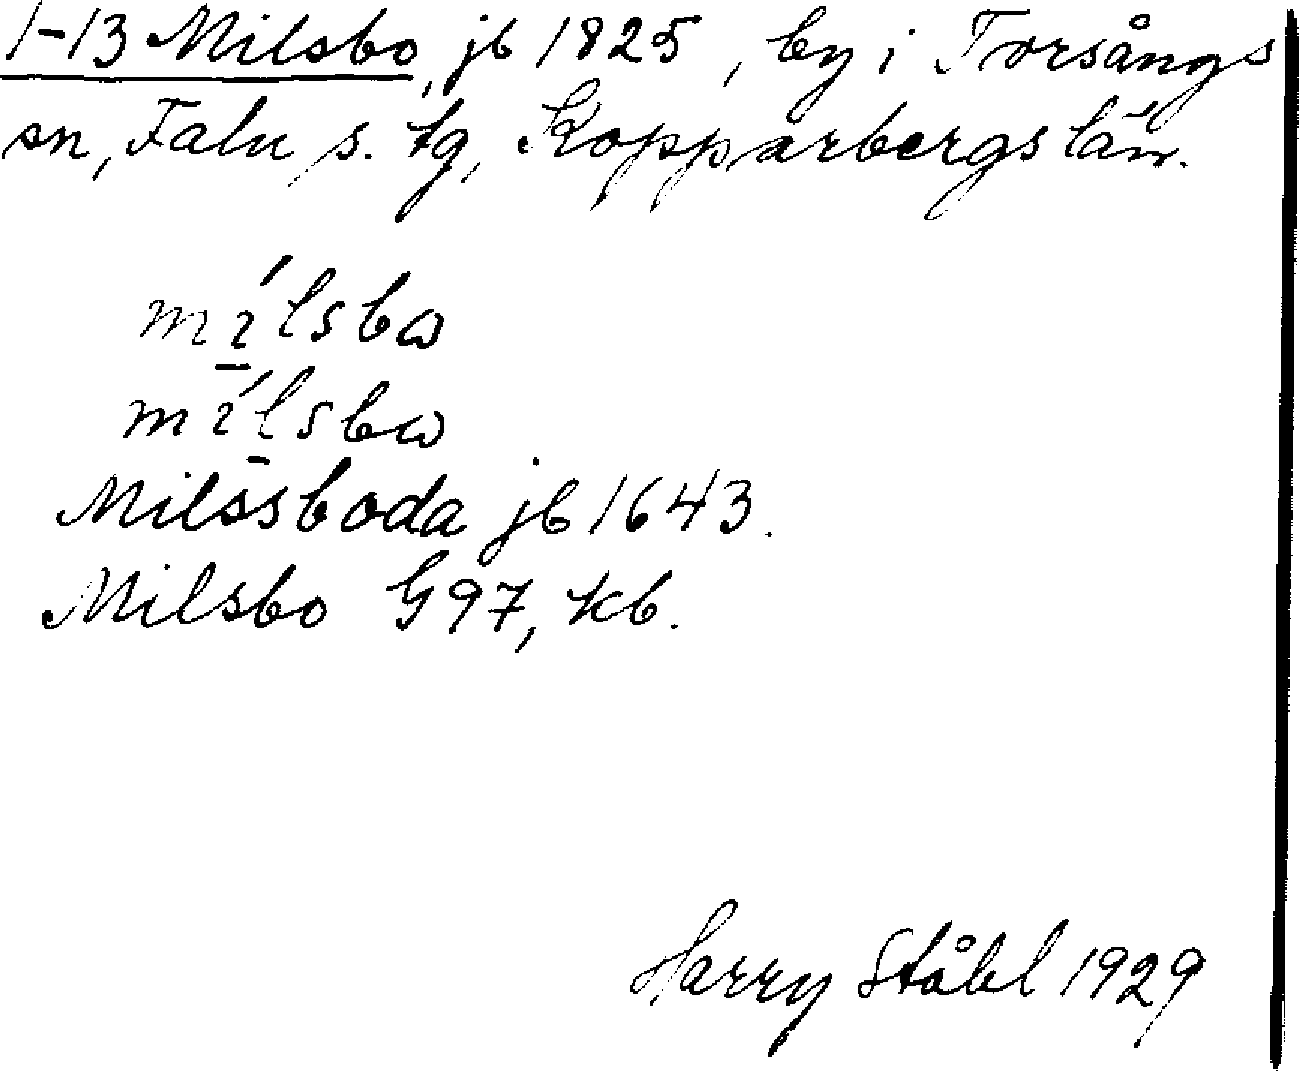 1-13 Milsbo, jb 1825, by i Torsångs
sn, Falu s. tg, Kopparbergs län.
mílsbω
mílsbω
Milssboda jb 1643.
Milsbo G97, kb.
Harry Ståhl 1929